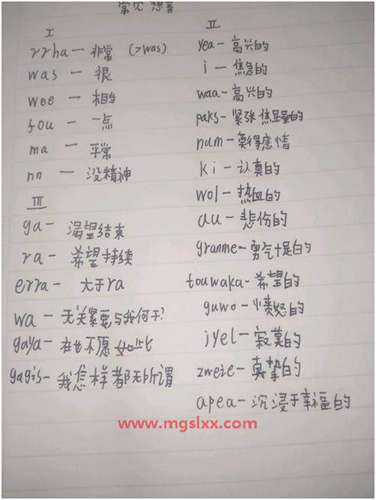 常见想音
I
rrha — 非常 (>was)
was — 很
wee — 相当
fou — 一点
ma — 平常
nn — 没精神
III
ga — 渴望结束
ra — 希望持续
erra — 大于ra
wa — 无关紧要与我何干?
gaya — 再也不愿如此
gagis — 我怎样都无所谓
II
yea — 高兴的
i — 焦急的
waa — 高兴的
paks — 紧张焦虑的
num — 莫得感情
ki — 认真的
wol — 热血的
au — 悲伤的
granme — 勇气十足的
touwaka — 希望的
guwo — 愤怒的
iyel — 寂寞的
zweie — 真挚的
apea — 沉浸于幸福的
www.mgslxx.com